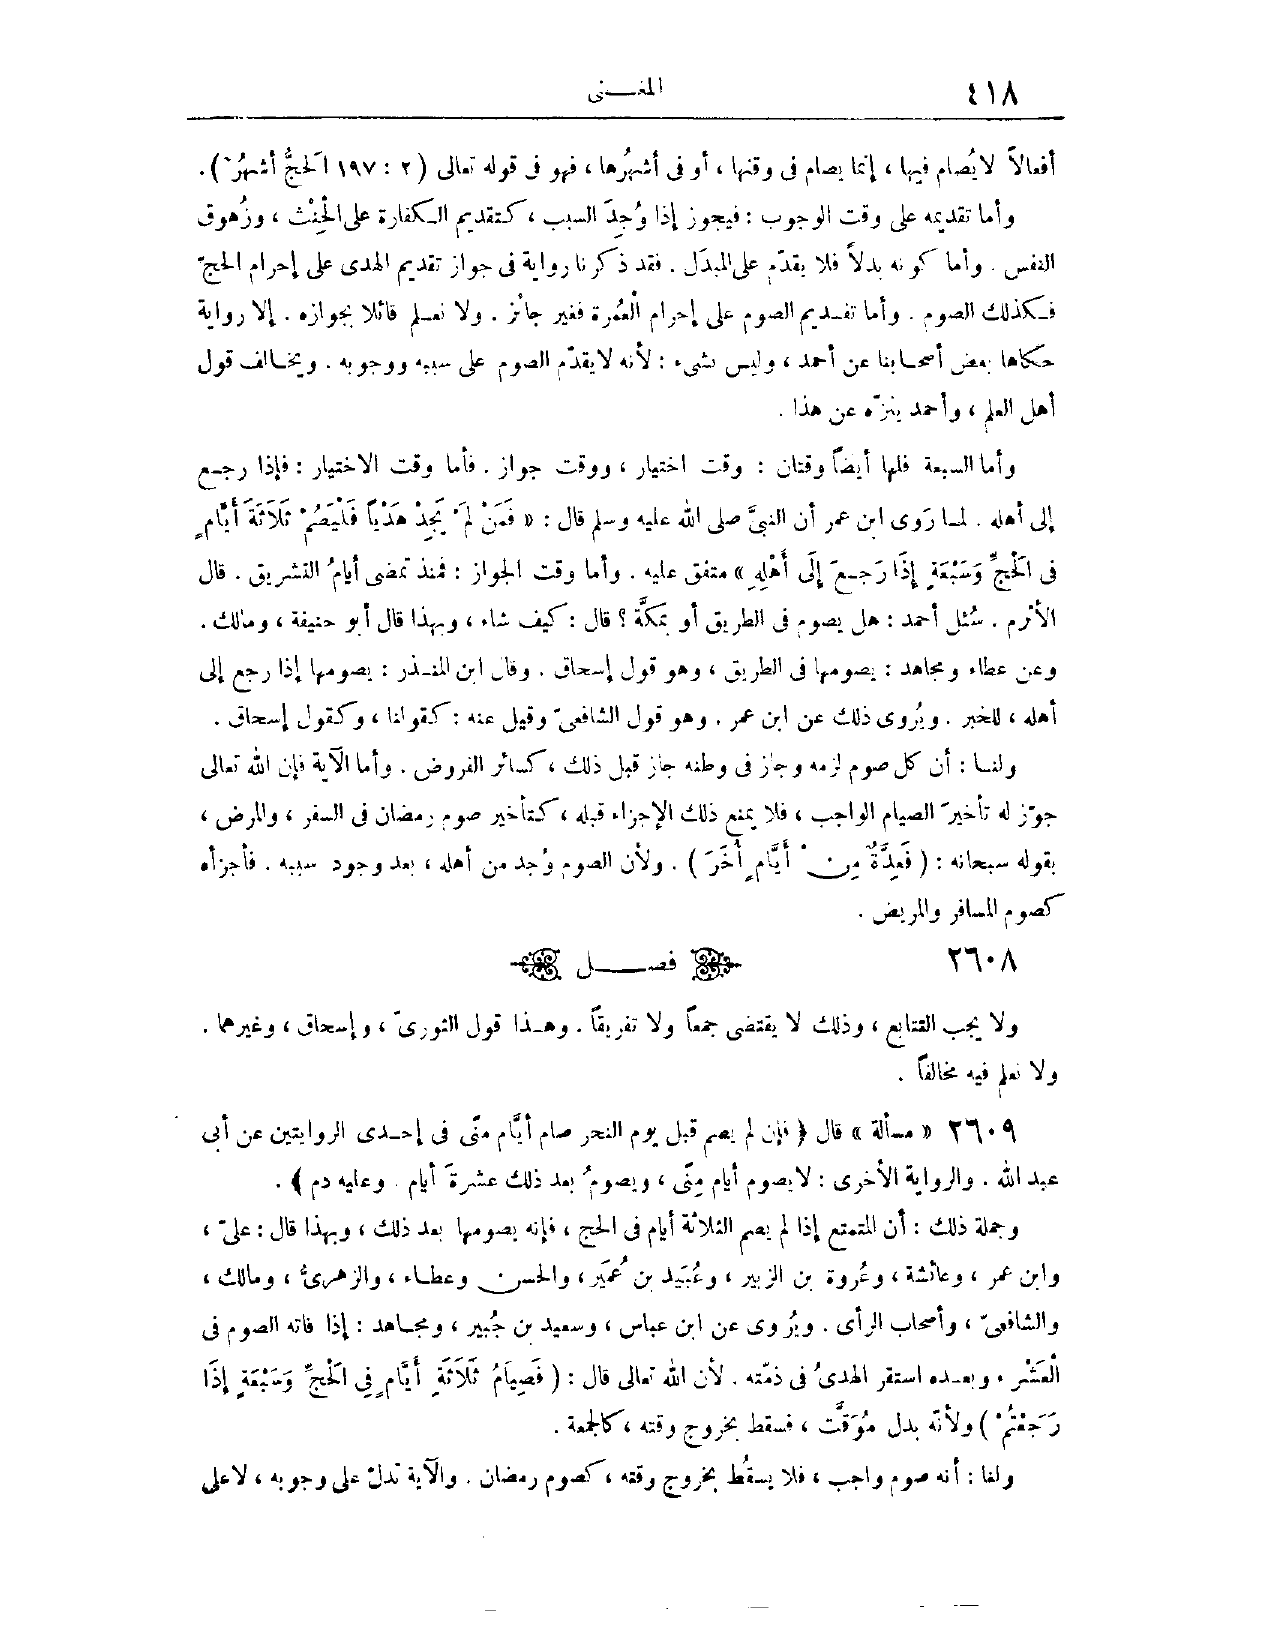 ٤١٨
المغـــنى
أفعالاً لا يُصام فيها ، إنما يصام فى وقتها ، أو فى أشهُرها ، فهو فى قوله تعالى ( ٢ : ١٩٧ الَحجُّ أشهُرٌ ) .
وأما تقديمه على وقت الوجوب : فيجوز إذا وُجِدَ السبب ، كتقديم الكفارة على الْحِنْث ، وزُهوق
النفس . وأما كونه بدلاً فلا يقدّم على المبدَل . فقد ذكرنا رواية فى جواز تقديم الهدى على إحرام الحجّ
فكذلك الصوم . وأما تقديم الصوم على إحرام الْعُمرة فغير جائز . ولا نعلم قائلا بجوازه . إلا رواية
حكاها بعض أصحابنا عن أحمد ، وليس بشىء : لأنه لا يقدّم الصوم على سببه ووجوبه . ويخالف قول
أهل العلم ، وأحمد ينزّه عن هذا .
وأما السبعة فلها أيضاً وقتان : وقت اختيار ، ووقت جواز . فأما وقت الاختيار : فإذا رجع
إلى أهله . لما رَوى ابن عمر أن النبىَّ صلى الله عليه وسلم قال : « فَمَنْ لَمْ يَجِدْ هَدْياً فَلْيَصُمْ ثَلَاثَةَ أَيَّامٍ
فى الَحْجِّ وَسَبْعَةٍ إِذَا رَجَعَ إِلَى أَهْلِهِ » متفق عليه . وأما وقت الجواز : فمنذ تمضى أيامُ التشريق . قال
الأثرم . سُئل أحمد : هل يصوم فى الطريق أو بمكَّة ؟ قال : كيف شاء ، وبهذا قال أبو حنيفة ، ومالك .
وعن عطاء ومجاهد : يصومها فى الطريق ، وهو قول إسحاق . وقال ابن المنذر : يصومها إذا رجع إلى
أهله ، للخبر . ويُروى ذلك عن ابن عمر . وهو قول الشافعىّ وقيل عنه : كقولنا ، وكقول إسحاق .
ولنا : أن كل صوم لزمه وجاز فى وطنه جاز قبل ذلك ، كسائر الفروض . وأما الآية فإن الله تعالى
جوّز له تأخيرَ الصيام الواجب ، فلا يمنع ذلك الإجزاء قبله ، كتأخير صوم رمضان فى السفر ، والمرض ،
بقوله سبحانه : ( فَعِدَّةٌ مِنْ أَيَّامٍ أُخَرَ ) . ولأن الصوم وُجد من أهله ، بعد وجود سببه . فأجزأه
كصوم المسافر والمريض .
٢٦٠٨
فصـــل
ولا يجب التتابع ، وذلك لا يقتضى جمعاً ولا تفريقاً . وهذا قول الثورىّ ، وإسحاق ، وغيرهما .
ولا نعلم فيه مخالفاً .
٢٦٠٩ « مسألة » قال ﴿ فإن لم يصم قبل يوم النحر صام أيَّام منًى فى إحدى الروايتين عن أبى
عبد الله . والرواية الأخرى : لا يصوم أيام مِنًى ، ويصومُ بعد ذلك عشرةَ أيام . وعليه دم ﴾ .
وجملة ذلك : أن المتمتع إذا لم يصم الثلاثة أيام فى الحج ، فإنه يصومها بعد ذلك ، وبهذا قال : علىّ ،
وابن عمر ، وعائشة ، وعُروة بن الزبير ، وعُبَيد بن عُمَير ، والحسن وعطاء ، والزهرىُّ ، ومالك ،
والشافعىّ ، وأصحاب الرأى . ويُروى عن ابن عباس ، وسعيد بن جُبير ، ومجاهد : إذا فاته الصوم فى
الْعَشْر ، وبعده استقر الهدىُ فى ذمّته . لأن الله تعالى قال : ( فَصِيَامُ ثَلَاثَةِ أَيَّامٍ فِى الَحْجِّ وَسَبْعَةٍ إِذَا
رَجَعْتُمْ ) ولأنّه بدل مُوَقَّت ، فسقط بخروج وقته ، كالجمعة .
ولنا : أنه صوم واجب ، فلا يسقُط بخروج وقته ، كصوم رمضان . والآية تدلّ على وجوبه ، لا على